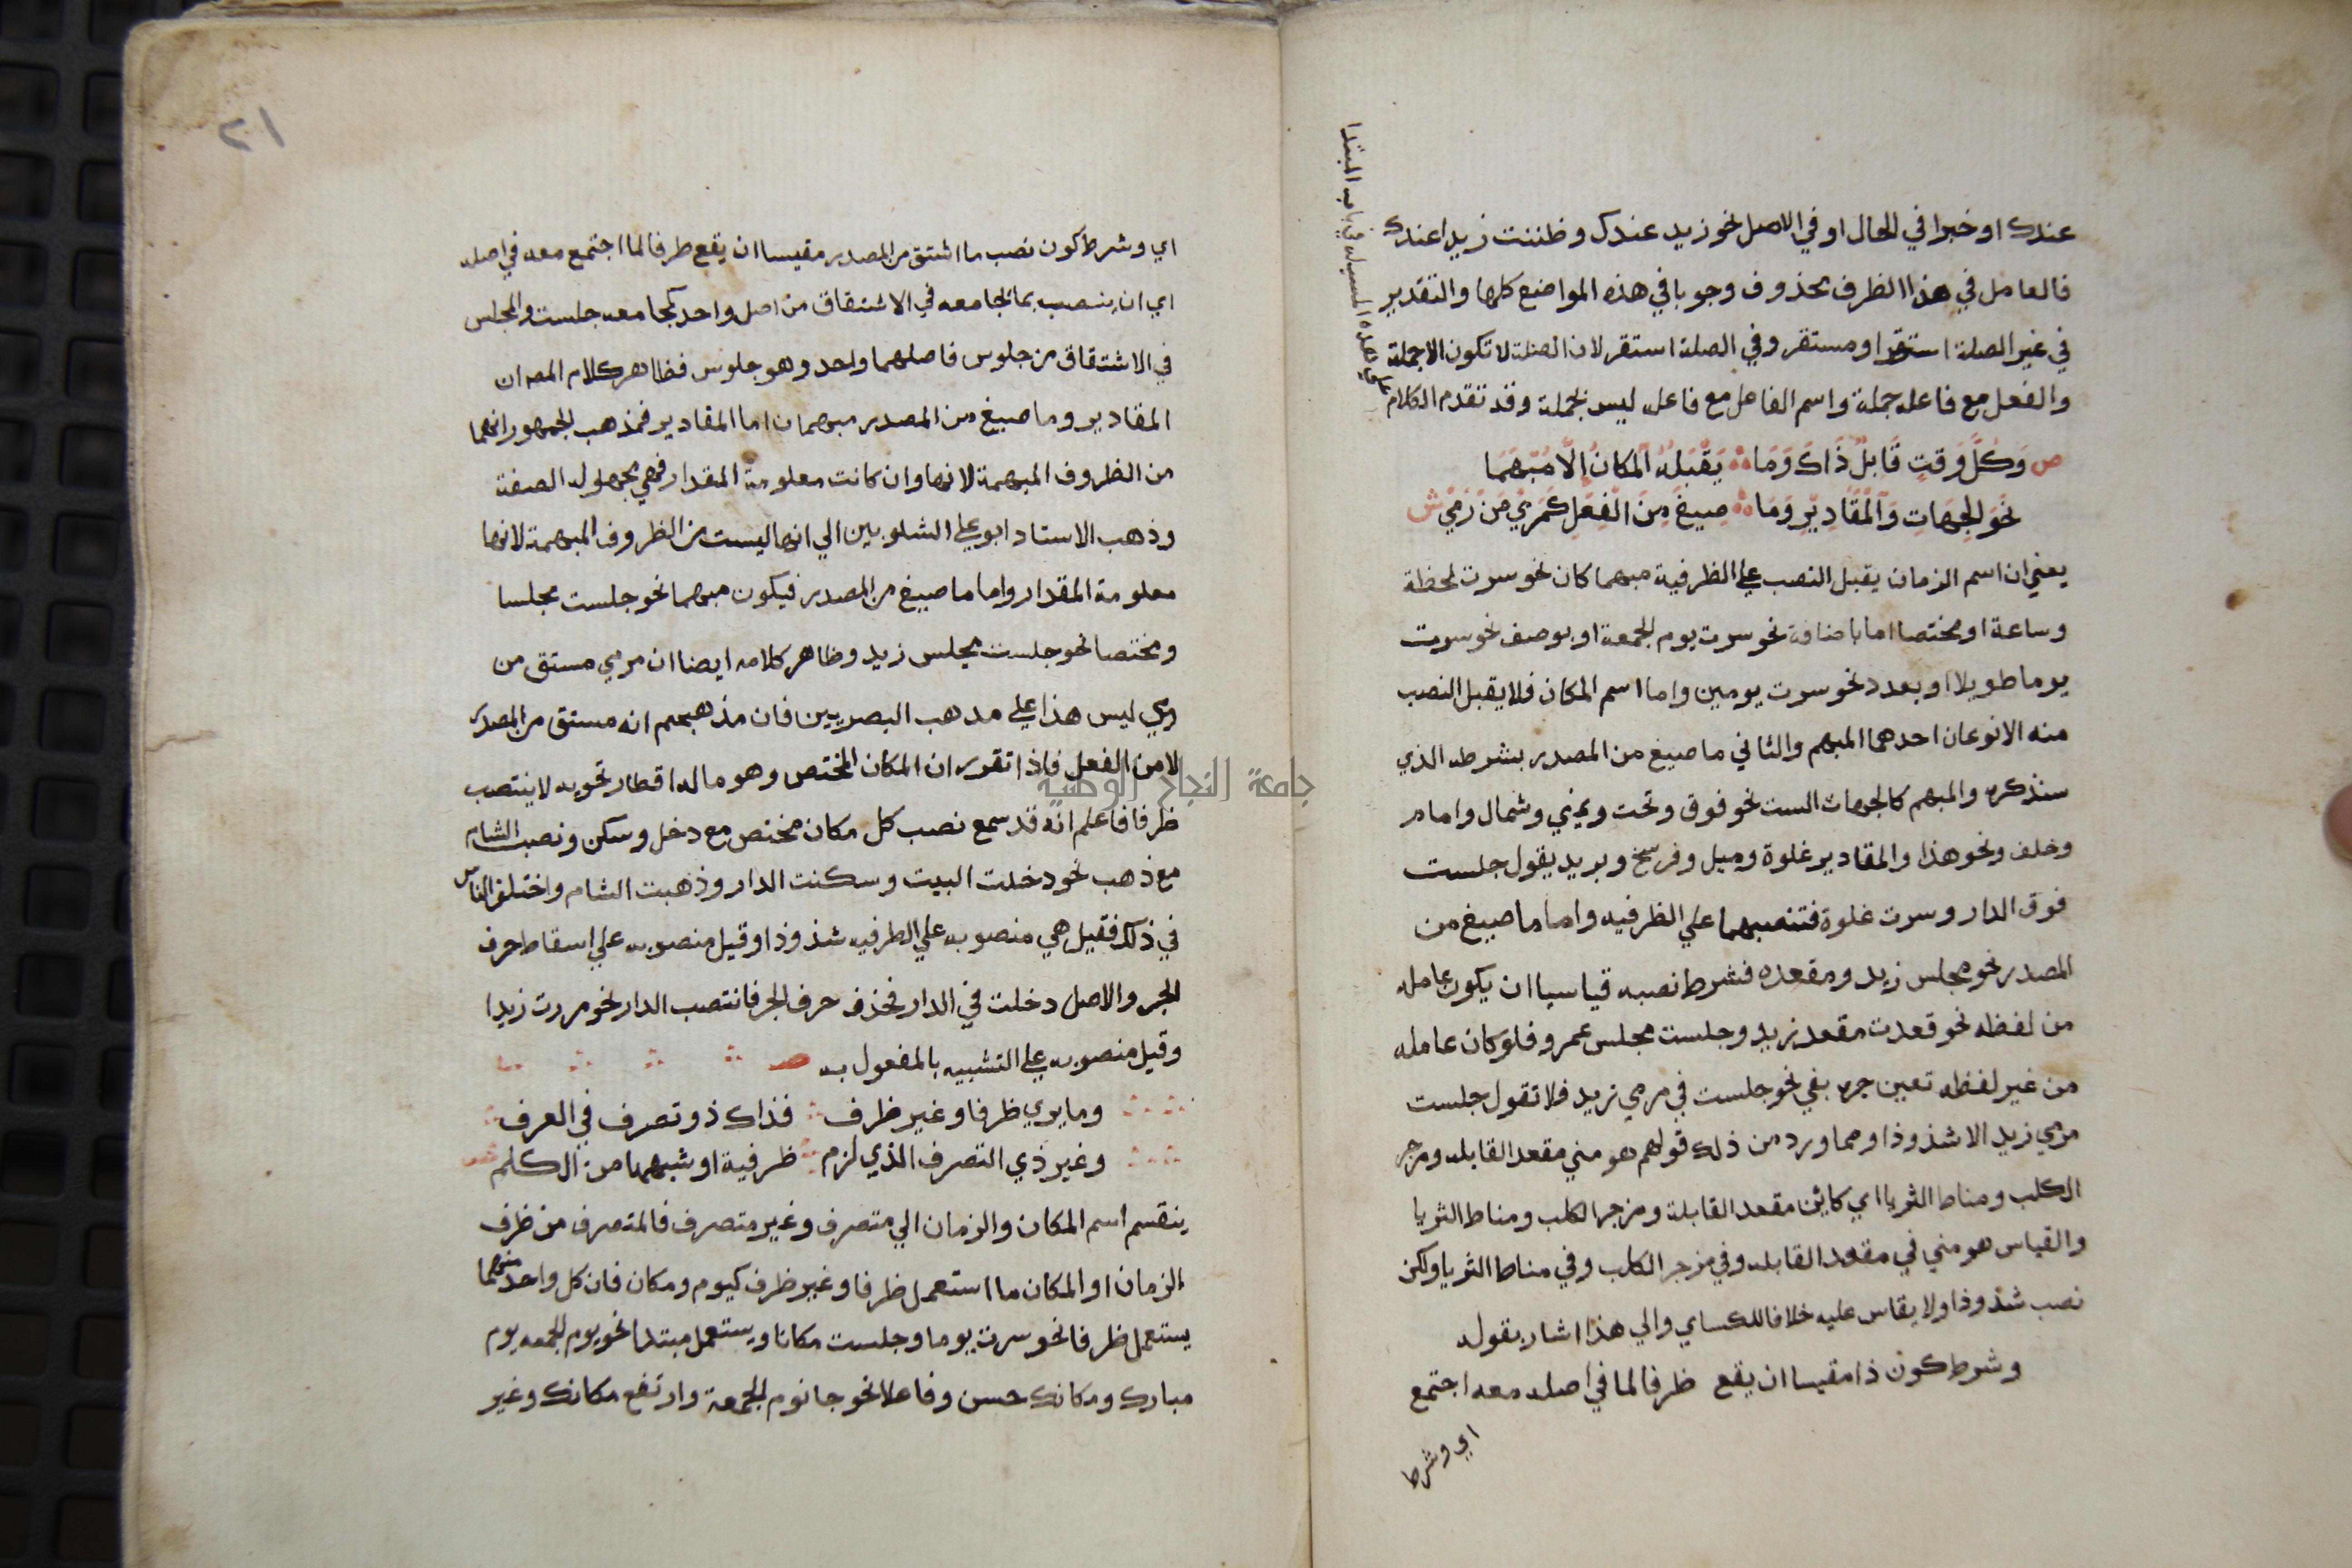 عندك او خبرا في الحال او في الاصل نحو زيد عندك وظننت زيدا عندك
فالعامل في هذا الظرف محذوف وجوبا في هذه المواضع كلها والتقدير
في غير الصلة استقر او مستقر وفي الصلة استقر لان الصلة لا تكون الا جملة
والفعل مع فاعله جملة واسم الفاعل مع فاعله ليس بجملة وقد تقدم الكلام
علي هذه المسيله في باب المبتدا
ص وَكُلُّ وَقتٍ قَابِلٌ ذَاكَ وَمَا يَقْبَلُهُ المَكَانُ إِلَّا مُبْهَمَا
نَحْوَ الجِهَاتِ وَالمَقَادِيرِ وَمَا صِيغَ مِنَ الفِعْلِ كَمَرْمَيً مِنْ رَمَيْ ش
يعني ان اسم الزمان يقبل النصب علي الظرفية مبهما كان نحو سرت لحظة
وساعة او مختصا اما باضافة نحو سرت يوم الجمعة او بوصف نحو سرت
يوما طويلا او بعدد نحو سرت يومين واما اسم المكان فلا يقبل النصب
منه الا نوعان احدهما المبهم والثاني ما صيغ من المصدر بشرطه الذي
سنذكره والمبهم كالجهات الست نحو فوق وتحت ويمين وشمال وامام
وخلف ونحو هذا والمقادير غلوة وميل وفرسخ وبريد يقول جلست
فوق الدار وسرت غلوة فتنصبهما علي الظرفيه واما ما صيغ من
المصدر نحو مجلس زيد ومقعده فشرط نصبه قياسيا ان يكون عامله
من لفظه نحو قعدت مقعد زيد وجلست مجلس عمرو فلو كان عامله
من غير لفظه تعين جره بفي نحو جلست في مرمي زيد فلا تقول جلست
مرمي زيد الا شذوذا ومما ورد من ذلك قولهم هو مني مقعد القابله ومزجر
الكلب ومناط الثريا اي كاين مقعد القابلة ومزجر الكلب ومناط الثريا
والقياس هو مني في مقعد القابله وفي مزجر الكلب وفي مناط الثريا ولكن
نصب شذوذا ولا يقاس عليه خلافا للكساي والي هذا اشار بقوله
وشرط كون ذا مقيسا ان يقع ظرفا لما في اصله معه اجتمع
اي وشرط
٢١
اي وشرط كون نصب ما اشتق من المصدر مقيسا ان يقع ظرفا لما اجتمع معه في اصله
اي ان ينصب بما يجامعه في الاشتقاق من اصل واحد كمجامعه جلست والمجلس
في الاشتقاق من جلوس فاصلهما واحد وهو جلوس فظاهر كلام المص ان
المقادير وما صيغ من المصدر مبهمان اما المقادير فمذهب الجمهور انهما
من الظروف المبهمة لانها وان كانت معلومة المقدار فهي مجهوله الصفة
وذهب الاستاد ابو علي الشلوبين الي انها ليست من الظروف المبهمة لانها
معلومة المقدار واما ما صيغ من المصدر فيكون مبهما نحو جلست مجلسا
ومختصا نحو جلست مجلس زيد وظاهر كلامه ايضا ان مرمي مستق من
رمي ليس هذا علي مدهب البصريين فان مذهبهم انه مستق من المصدر
لا من الفعل فاذا تقرر ان المكان المختص وهو ما له اقطار تحويه لا ينتصب
ظرفا فاعلم انه قد سمع نصب كل مكان مختص مع دخل وسكن ونصب الشام
مع ذهب نحو دخلت البيت وسكنت الدار وذهبت الشام واختلف الناس
في ذلك فقيل هي منصوبه علي الظرفيه شذوذا وقيل منصوبه علي اسقاط حرف
الجر والاصل دخلت في الدار فحذف حرف الجر فانتصب الدار نحو مررت زيدا
وقيل منصوبه علي التشبيه بالمفعول به ص
وما يري ظرفا وغير ظرف فذاك ذو تصرف في العرف
وغير ذي التصرف الذي لزم ظرفية او شبهها من الكلم ش
ينقسم اسم المكان والزمان الي متصرف وغير متصرف فالمتصرف من ظرف
الزمان او المكان ما استعمل ظرفا وغير ظرف كيوم ومكان فان كل واحد منهما
يستعمل ظرفا نحو سرت يوما وجلست مكانا ويستعمل مبتدا نحو يوم الجمعه يوم
مبارك ومكانك حسن وفاعلا نحو جا يوم الجمعة وارتفع مكانك وغير
جامعة النجاح الوطنية